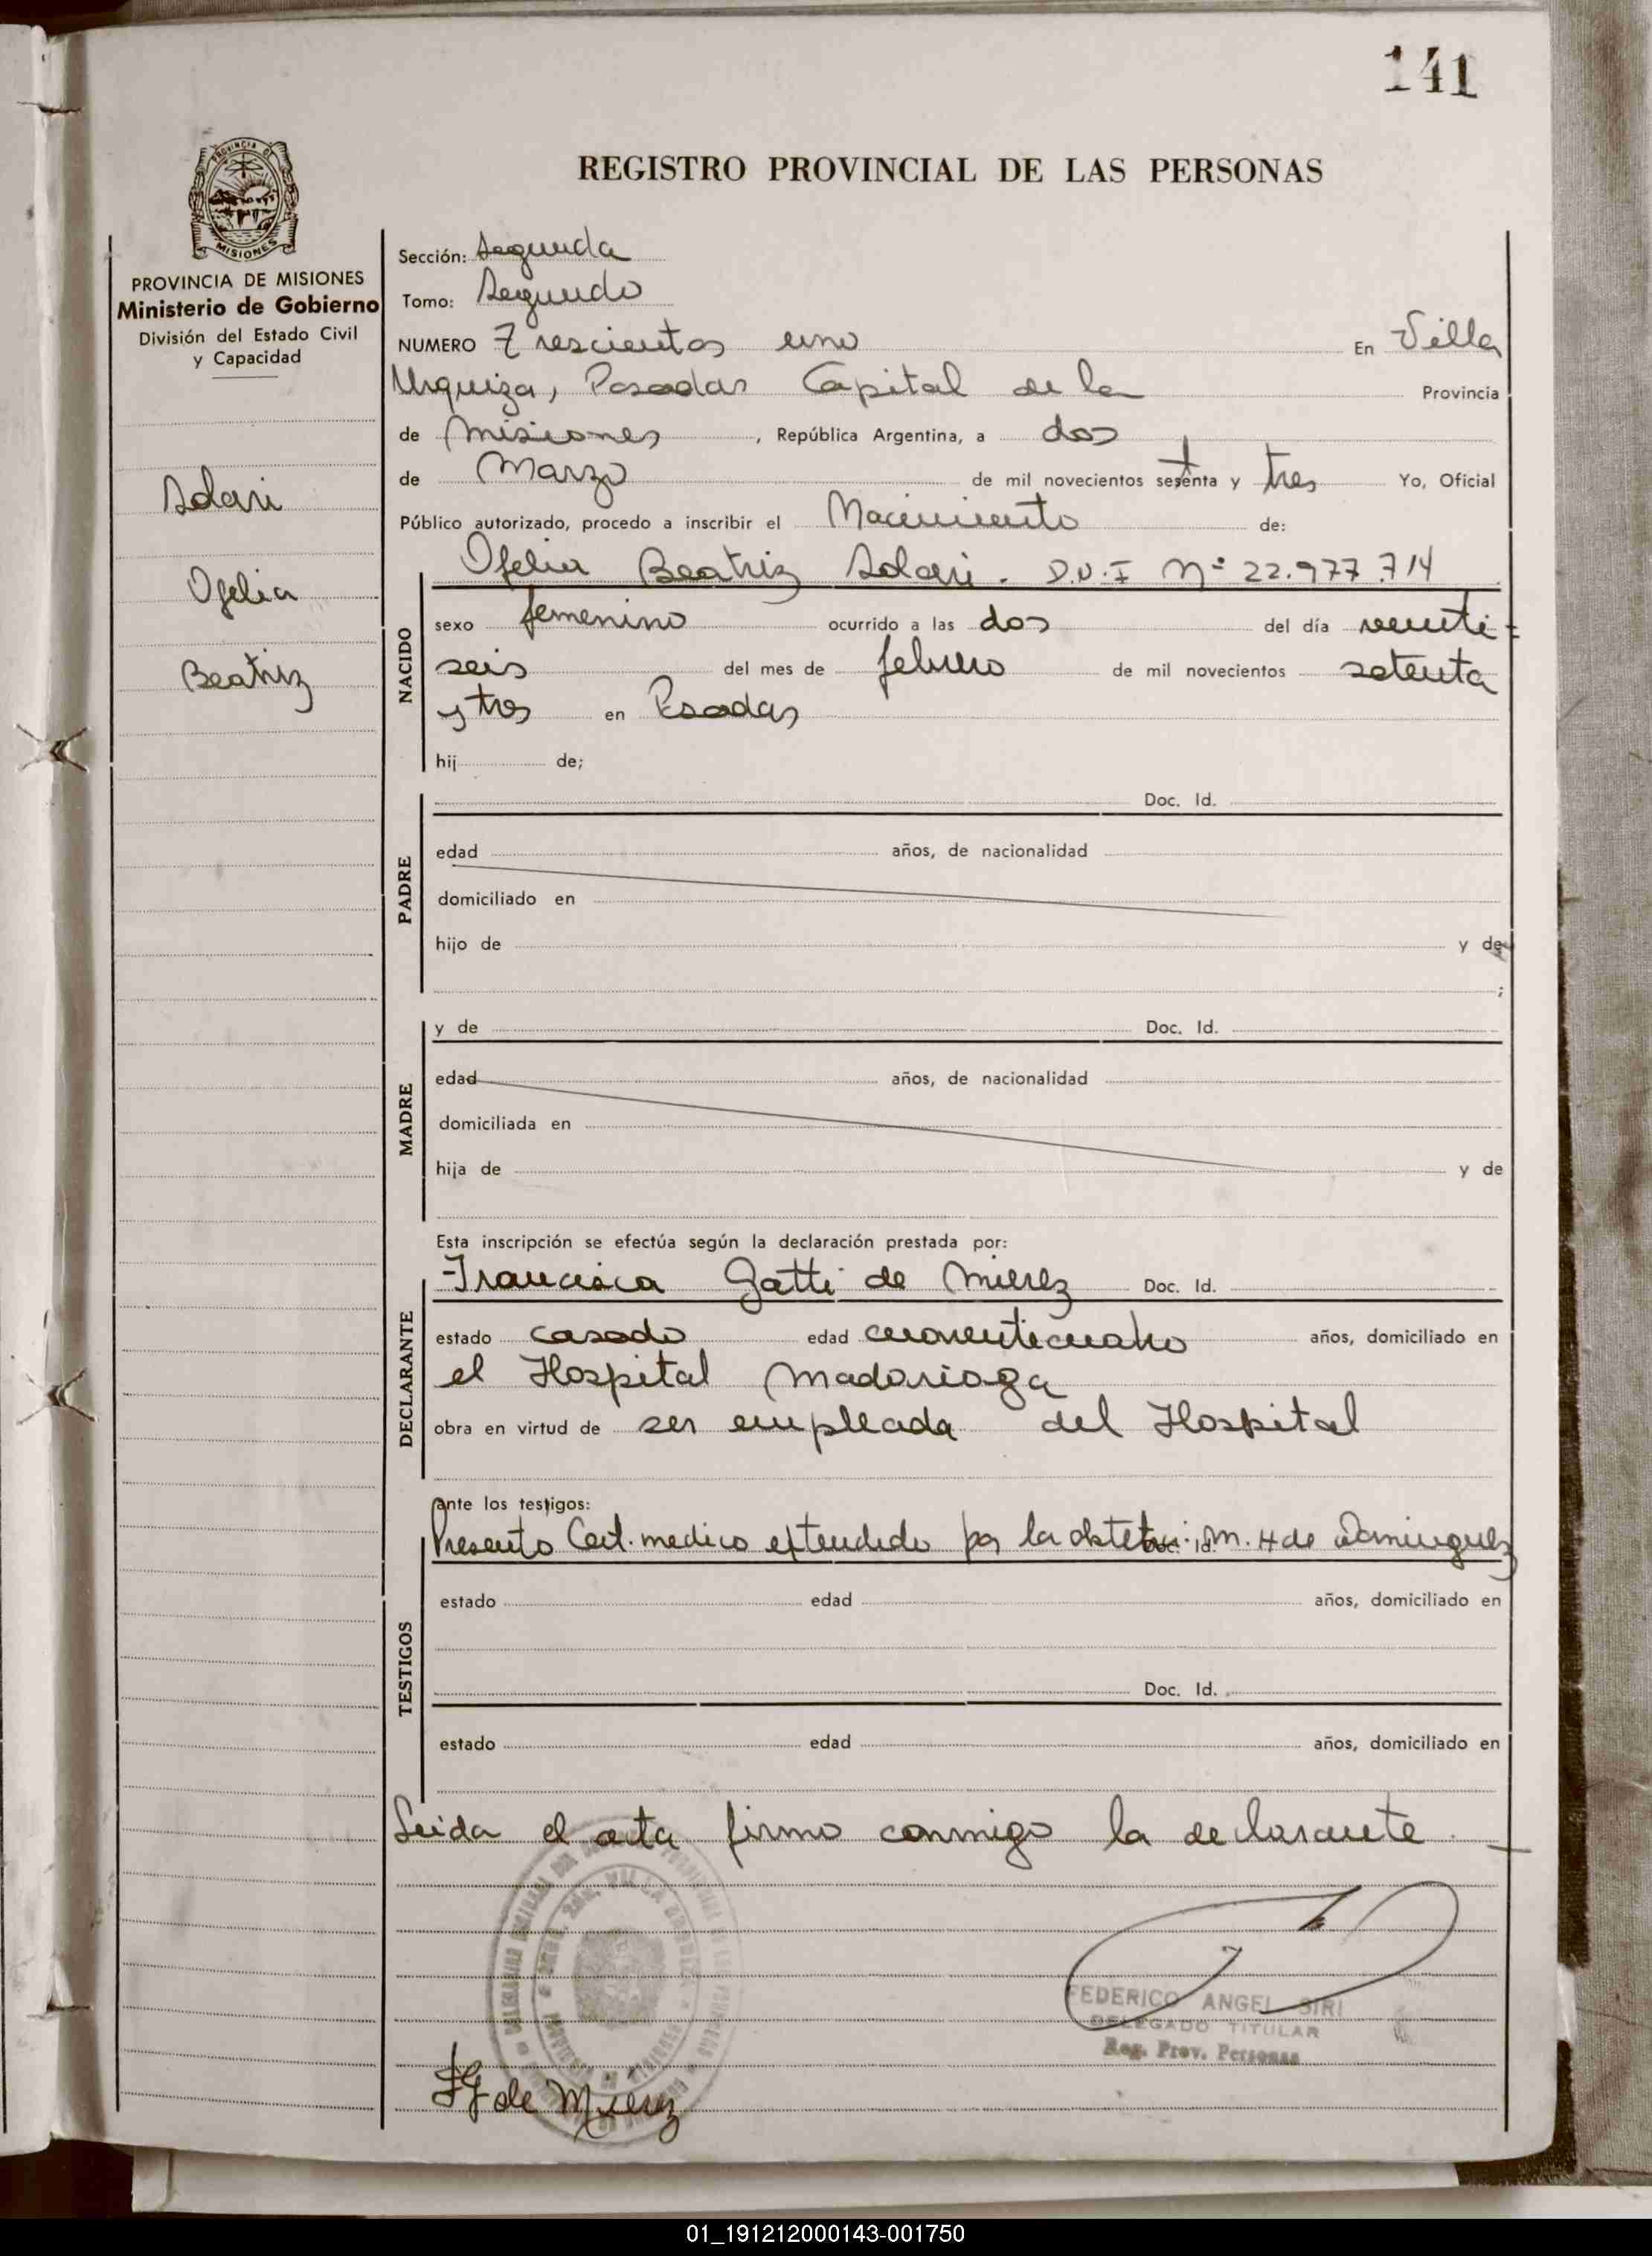 141
PROVINCIA DE
MISIONES
REGISTRO PROVINCIAL DE LAS PERSONAS
PROVINCIA DE MISIONES
Ministerio de Gobierno
División del Estado Civil
y Capacidad
Solari
Ofelia
Beatriz
Sección: Segunda
Tomo: Segundo
NUMERO Trescientos uno En Villa
Urquiza, Posadas Capital de la Provincia
de Misiones, República Argentina, a dos
de Marzo de mil novecientos setenta y tres Yo, Oficial
Público autorizado, procedo a inscribir el Nacimiento de:
Ofelia Beatriz Solari. D.N.I Nº 22.977.714
NACIDO
sexo femenino ocurrido a las dos del día veinti-
seis del mes de febrero de mil novecientos setenta
y tres en Posadas
hij de;
PADRE
Doc. Id.
edad años, de nacionalidad
domiciliado en
hijo de y de
;
MADRE
y de Doc. Id.
edad años, de nacionalidad
domiciliada en
hija de y de
Esta inscripción se efectúa según la declaración prestada por:
DECLARANTE
Francisca Gatti de Mierez Doc. Id.
estado casado edad cuarenticuatro años, domiciliado en
el Hospital Madariaga
obra en virtud de ser empleada del Hospital
ante los testigos:
Presento Cert. medico extendido por la obstetri. M. H de Dominguez
TESTIGOS
estado edad años, domiciliado en
Doc. Id.
estado edad años, domiciliado en
Leida el acta firmo conmigo la declarante.
FEDERICO ANGEL SIRI
DELEGADO TITULAR
Reg. Prov. Personas
FG de Mierez
01_191212000143-001750